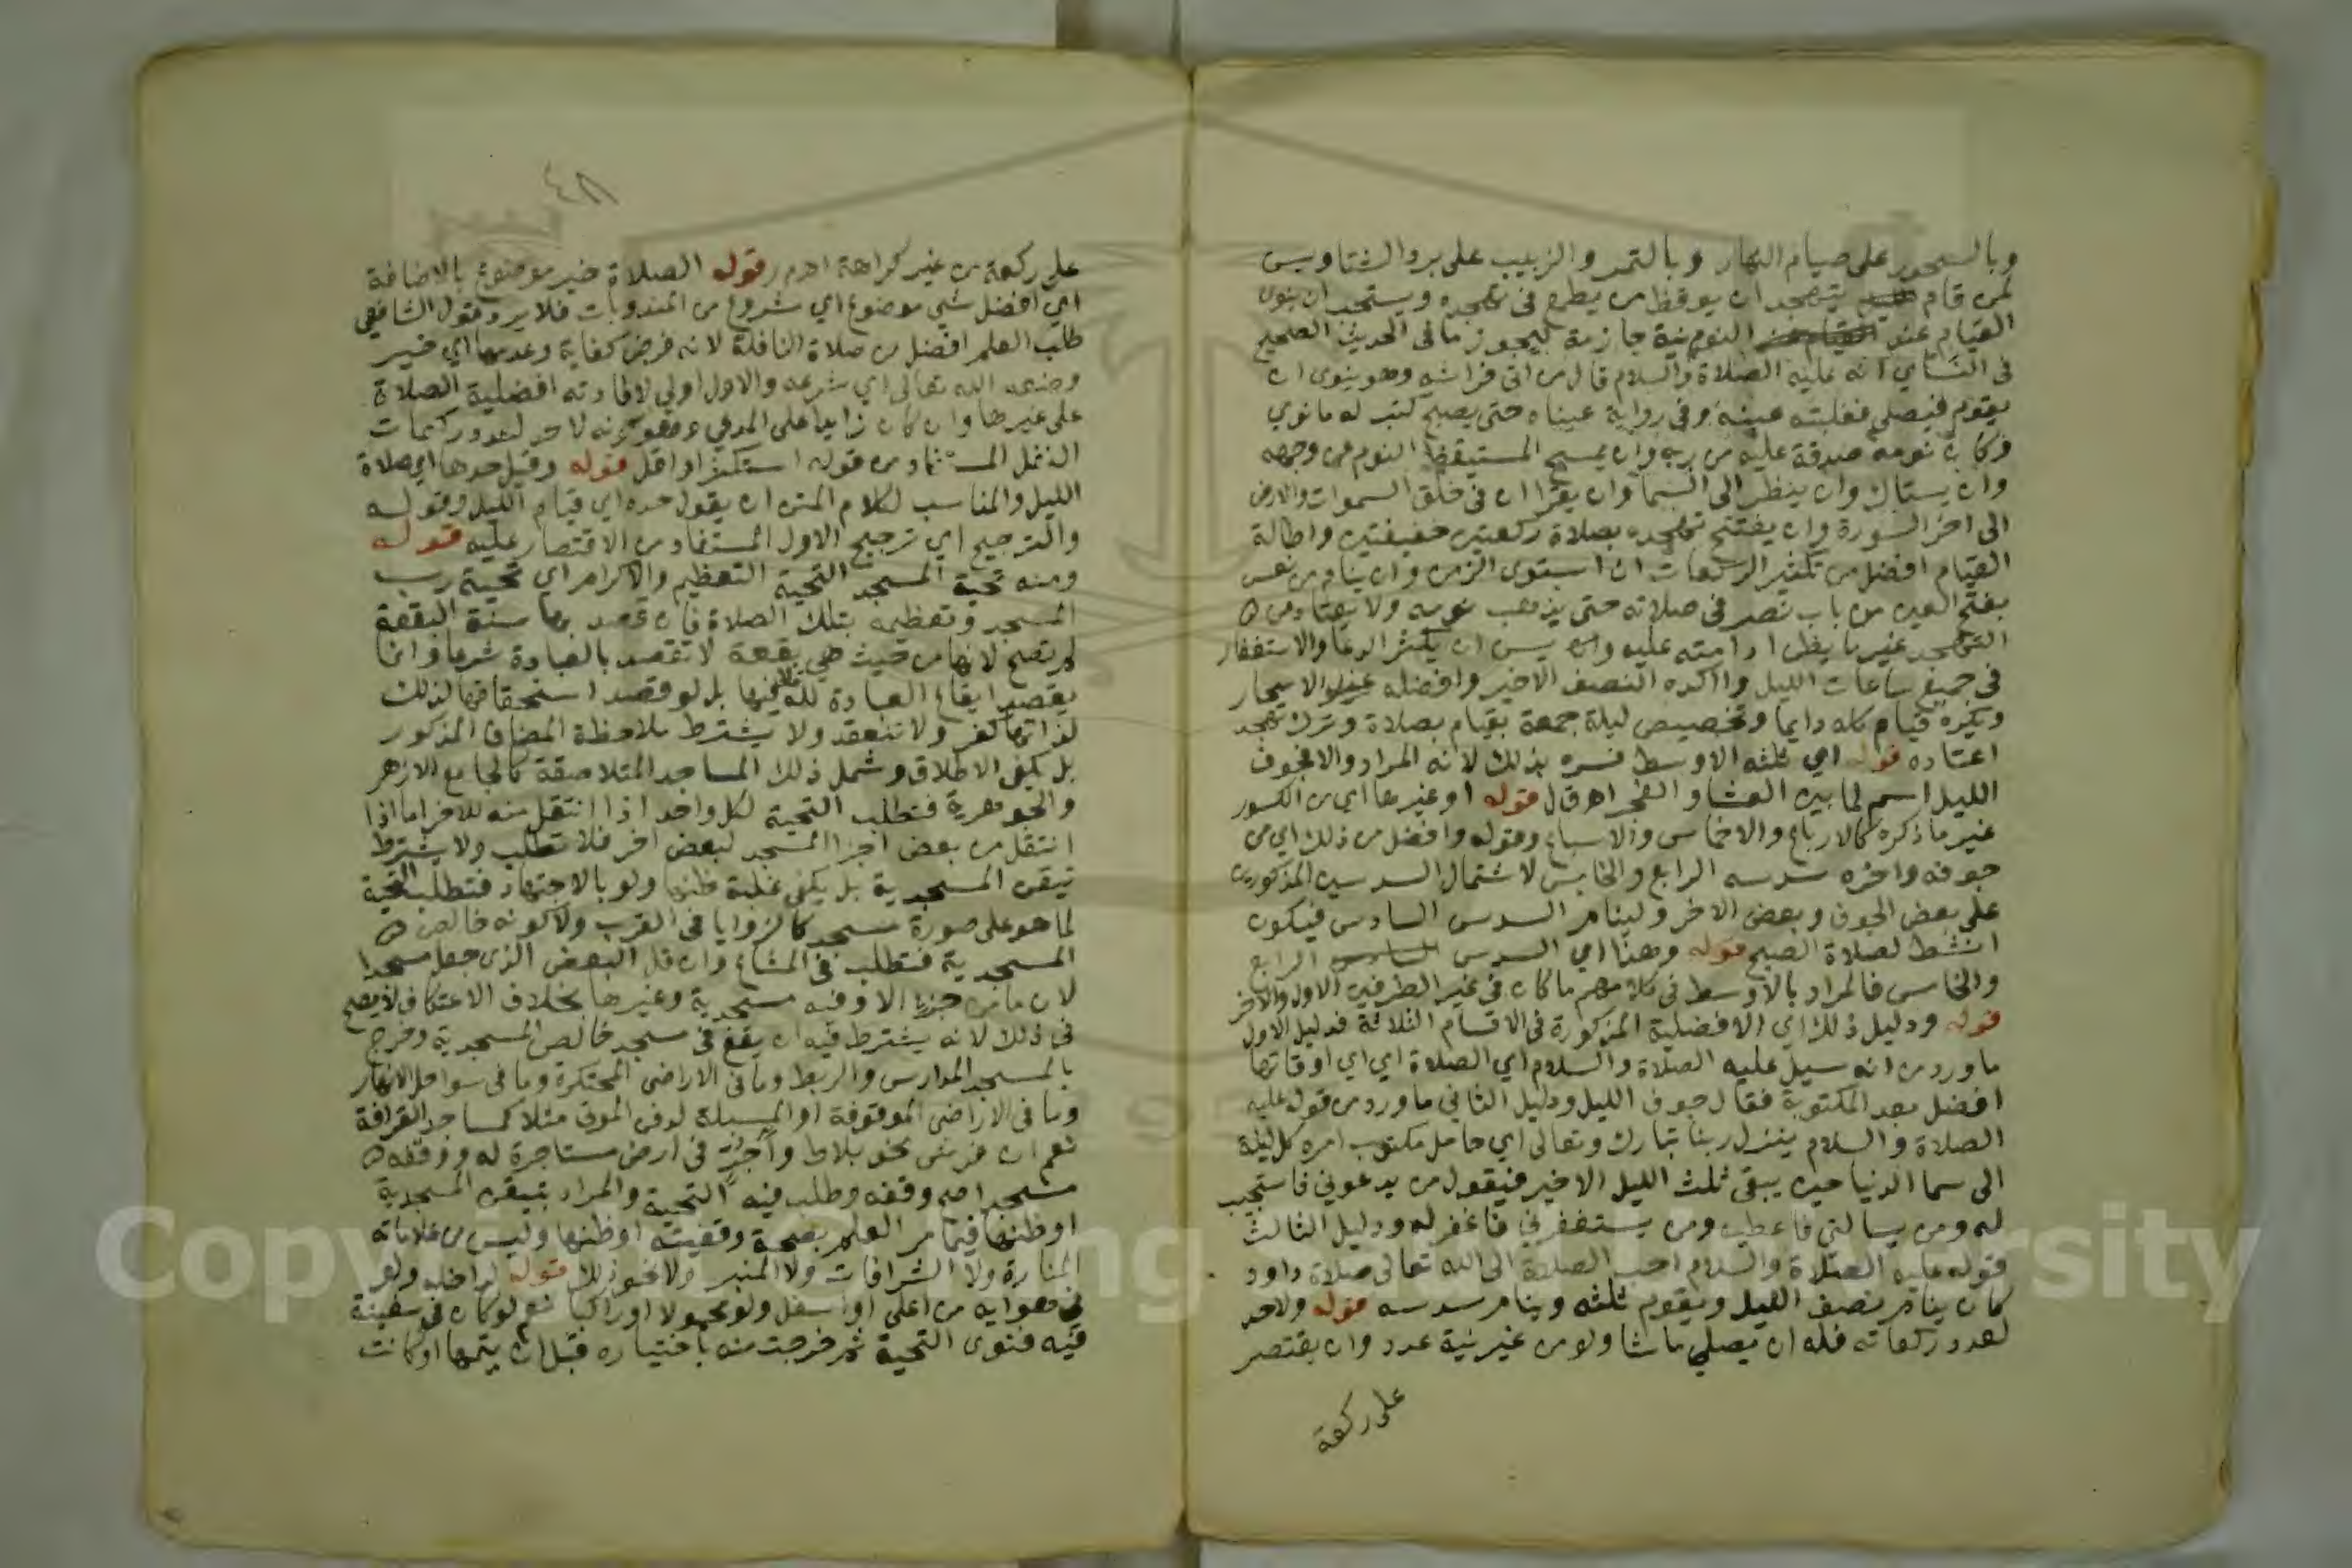 وبالسحور على صيام النهار وبالتمر والزبيب على برد الشتا ويسن
لمن قام يتهجد ان يوقظ من يطمع فى تهجده ويستحب ان ينوى
القيام عند النوم نية جازمة ليحوز ما فى الحديث الصحيح
فى النساى انه عليه الصلاة والسلام قال من اتى فراشه وهو ينوى ان
يقوم فيصلي فغلبته عينه وفى رواية عيناه حتى يصبح كتب له ما نوي
وكان نومه صدقة عليه من ربه وان يمسح المستيقظ النوم من وجهه
وان يستاك وان ينظر الى السما وان يقرا ان فى خلق السموات والارض
الى اخر السورة وان يفتتح تهجده بصلاة ركعتين خفيفتين واطالة
القيام افضل من تكثير الركعات ان استوى الزمن وان ينام من نعس
بفتح العين من باب نصر فى صلاته حتى يذهب نومه ولا يعتاد من
التهجد غير ما يظن ادامته عليه وان يسن ان يكثر الدعا والاستغفار
فى جميع ساعات الليل واكده النصف الاخير وافضله عند الاسحار
ويكره قيام كله دايما وتخصيص ليلة جمعة بقيام بصلاة وترك تهجد
اعتاده قوله اي ثلثه الاوسط فسره بذلك لانه المراد والا فجوف
الليل اسم لما بين العشا والفجر اهـ ق ل قوله او غيرها اى من الكسور
غير ما ذكره كالارباع والاخماس والاسباع وقوله وافضل من ذلك اي من
جوفه واخره سدسه الرابع والخامس لاشتمال السدسين المذكورين
على بعض الجوف وبعض الاخر ولينام السدس السادس فيكون
انشط لصلاة الصبح قوله وهذا اي السدس الرابع
والخامس فالمراد بالاوسط فى كلامهم ما كان فى غير الطرفين الاول والاخر
قوله ودليل ذلك اى الافضلية المذكورة فى الاقسام الثلاثة فدليل الاول
ما ورد من انه سيل عليه الصلاة والسلام اي الصلاة اي اي اوقاتها
افضل بعد المكتوبة فقال جوف الليل ودليل الثاني ما ورد من قوله عليه
الصلاة والسلام ينزل ربنا تبارك وتعالى اي حامل مكتوب امره كل ليلة
الى سما الدنيا حين يبقى ثلث الليل الاخير فيقول من يدعوني فاستجيب
له ومن يسالني فاعطيه ومن يستغفرني فاغفر له ودليل الثالث
قوله عليه الصلاة والسلام احب الصلاة الى الله تعالى صلاة داود
كان ينام نصف الليل ويقوم ثلثه وينام سدسه قوله ولاحد
لعدد ركعاته فله ان يصلي ما شا ولو من غير نية عدد وان يقتصر
على ركعة
٤٨
على ركعة من غير كراهة اهـ م ر قوله الصلاة خير موضوع بالاضافة
اي افضل شي موضوع اي مشروع من المندوبات فلا يرد قول الشافعي
طلب العلم افضل من صلاة النافلة لانه فرض كفاية وعدمها اي خير
وضعه الله تعالى اي شرعه والاول اولى لافادته افضلية الصلاة
على غيرها وان كان زايدا على المدعي وهو كونه لا حد لعدد ركعات
النفل المستفاد من قوله استكثر او اقل قوله وقيل حدها اي صلاة
الليل والمناسب لكلام المتن ان يقول حده اي قيام الليل وقوله
والترجيح اي ترجيح الاول المستفاد من الاقتصار عليه قوله
ومنه تحية المسجد التحية التعظيم والاكرام اي تحية رب
المسجد وتعظيمه بتلك الصلاة فان قصد بها سنة البقعة
لم يتصح لانها من حيث هي بقعة لا تقصد بالعبادة شرعا وانما
يقصد ايقاع العبادة لله فيها بل لو قصد استحقاقها لذلك
لذاتها كفر ولا تنعقد ولا يشترط ملاحظة المضاف المذكور
بل يكفى الاطلاق وشمل ذلك المساجد المتلاصقة كالجامع الازهر
والجوهرية فتطلب التحية لكل واحد اذا انتقل منه للاخر اما اذا
انتقل من بعض اجزا المسجد لبعض اخر فلا تطلب ولا يشترط
تيقن المسجدية بل يكفى غلبة ظنها ولو بالاجتهاد فتطلب التحية
لما هو على صورة مسجد كالزوايا فى القرب ولا كونه خالص
المسجدية فتطلب فى المشاع وان قل البعض الذى جعل مسجدا
لان ما من جزء الا وفيه مسجدية وغيرها بخلاف الاعتكاف لا يصح
فى ذلك لانه يشترط فيه ان يقع فى مسجد خالص المسجدية وخرج
بالمسجد المدارس والربط وما فى الاراضى المحتكرة وما فى سواحل الانهار
وما فى الاراضى الموقوفة او المسبلة لدفن الموتى مثلا كمساجد القرافة
نعم ان فرش نحو بلاط وآجر فى ارض مستاجرة له ووقفه
مسجدا صح وقفه وطلب فيه التحية والمراد بتيقن المسجدية
او ظنها فيما مر العلم بصحة وقفيته او ظنها وليس من علاماته
المنارة ولا الشرافات ولا المنبر ولا نحو ذلك قوله لداخله ولو
فى هوايه من اعلى او اسفل ولو محمولا او راكبا نعم لو كان فى سفينة
فيه فنوى التحية ثم خرجت منه باختياره قبل ان يتمها او كانت
Copyright © King Saud University